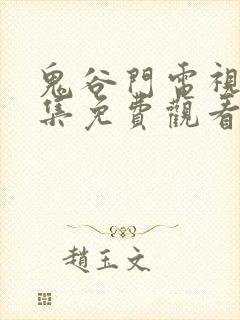 鬼谷門電視
集免費觀看
趙玉文